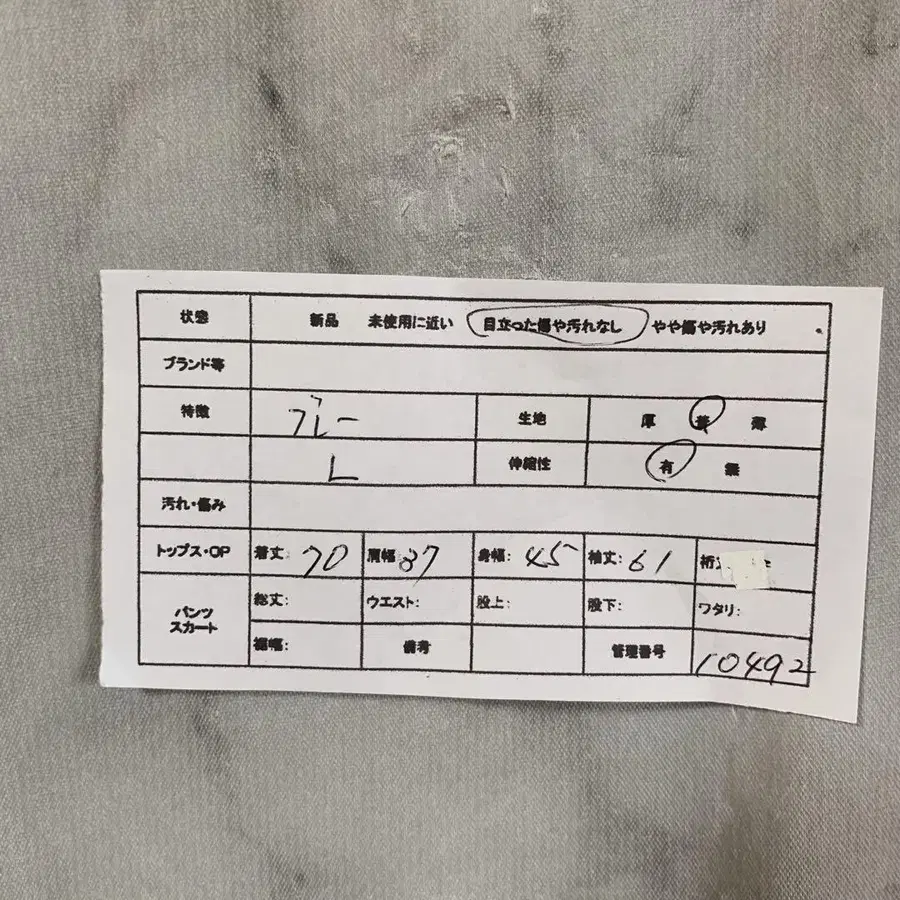 状態 新品 未使用に近い 目立った傷や汚れなし やや傷や汚れあり
ブランド等
特徴 グレー 生地 厚 普 薄
L 伸縮性 有 無
汚れ・傷み
トップス・OP 着丈: 70 肩幅: 37 身幅: 45 袖丈: 61 裄
パンツ
スカート
総丈: ウエスト: 股上: 股下: ワタリ:
裾幅: 備考 管理番号 10492